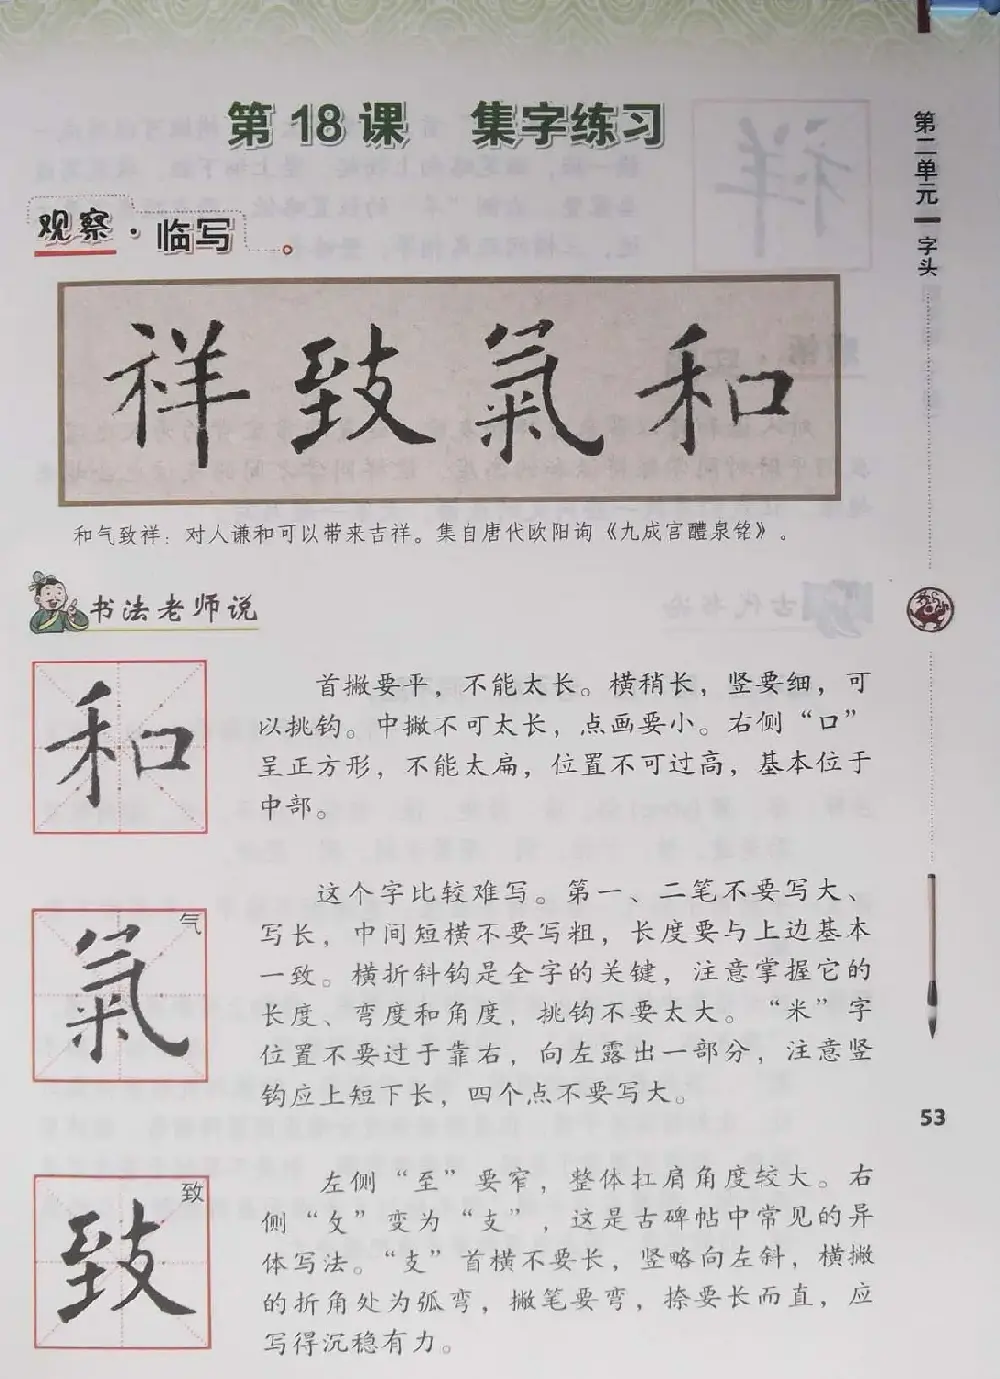 第18课 集字练习
观察·临写
祥致氣和
和气致祥：对人谦和可以带来吉祥。集自唐代欧阳询《九成宫醴泉铭》。
书法老师说
和
首撇要平，不能太长。横稍长，竖要细，可
以挑钩。中撇不可太长，点画要小。右侧“口”
呈正方形，不能太扁，位置不可过高，基本位于
中部。
气
氣
这个字比较难写。第一、二笔不要写大、
写长，中间短横不要写粗，长度要与上边基本
一致。横折斜钩是全字的关键，注意掌握它的
长度、弯度和角度，挑钩不要太大。“米”字
位置不要过于靠右，向左露出一部分，注意竖
钩应上短下长，四个点不要写大。
致
致
左侧“至”要窄，整体扛肩角度较大。右
侧“攵”变为“支”，这是古碑帖中常见的异
体写法。“支”首横不要长，竖略向左斜，横撇
的折角处为弧弯，撇笔要弯，捺要长而直，应
写得沉稳有力。
第二单元
字头
53